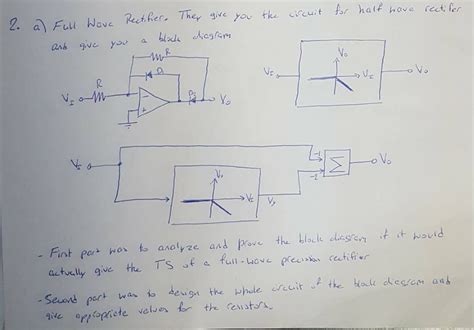 2. a) Full Wave Rectifier. They give you the circuit for half wave rectifer
and give you a block diagram
R
D1
R
VI
D2
Vo
Vo
VI
VI
Vo
VI
-1
Σ
Vo
-1
Vo
VI
- First part was to analyze and prove the block diagram if it would
actually give the TS of a full-wave precision rectifier
- Second part was to design the whole circuit of the block diagram and
give appropriate values for the resistors.